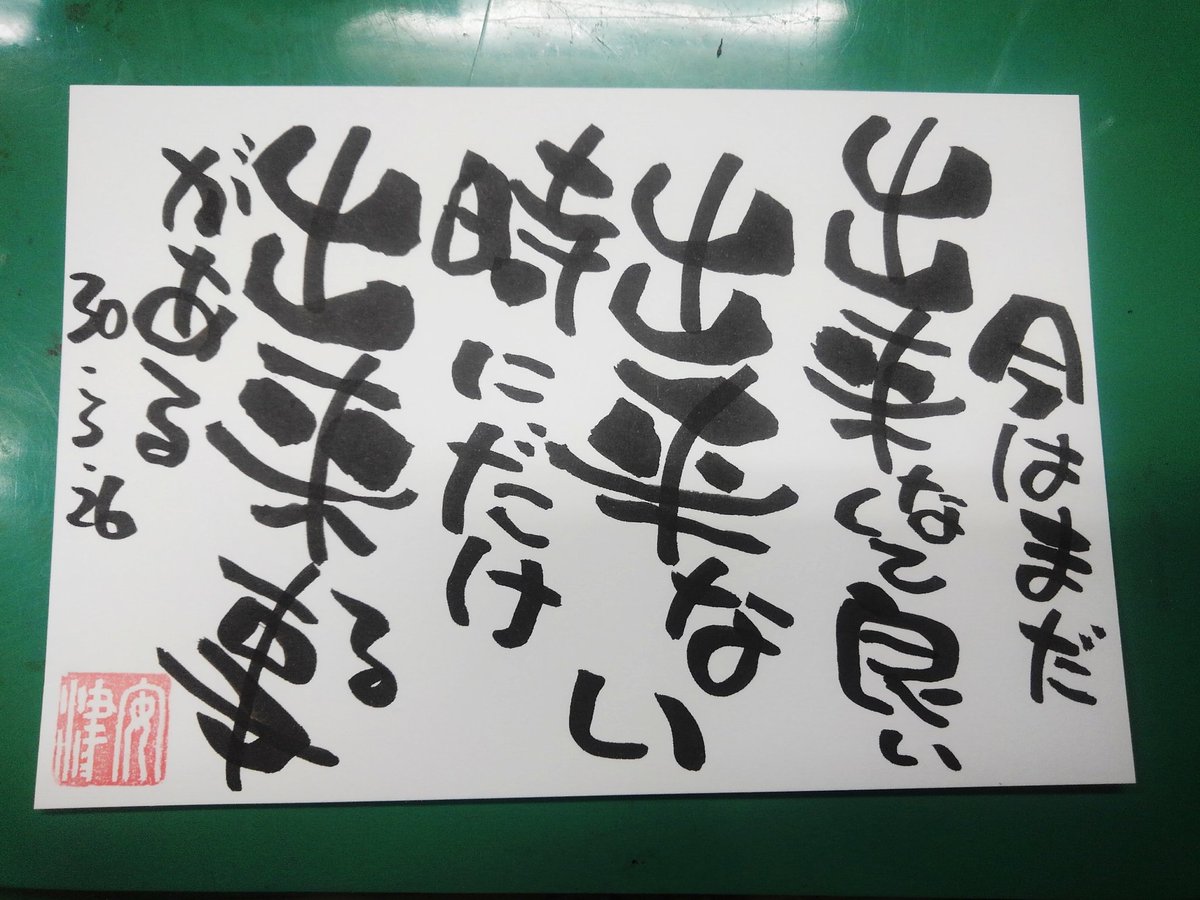 今はまだ
出来なくて良い
出来ない
時にだけ
出来る事
がある
30.3.26
安津